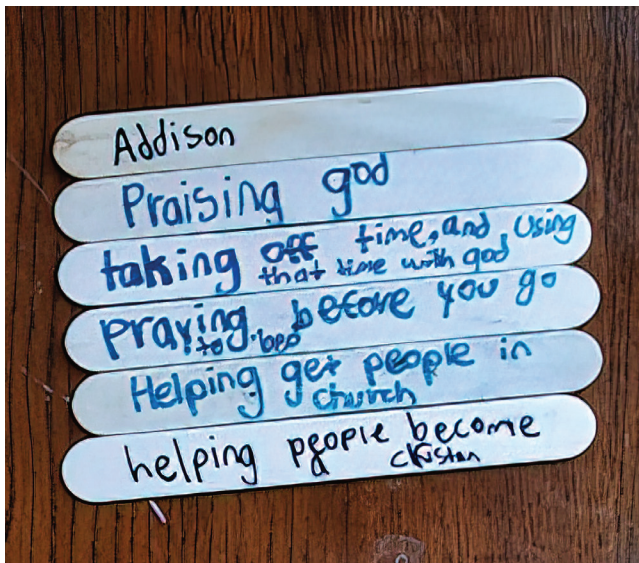 Addison
Praising god
taking off time, and using
that time with god
praying before you go
to bed
Helping get people in
church
helping people become
christan